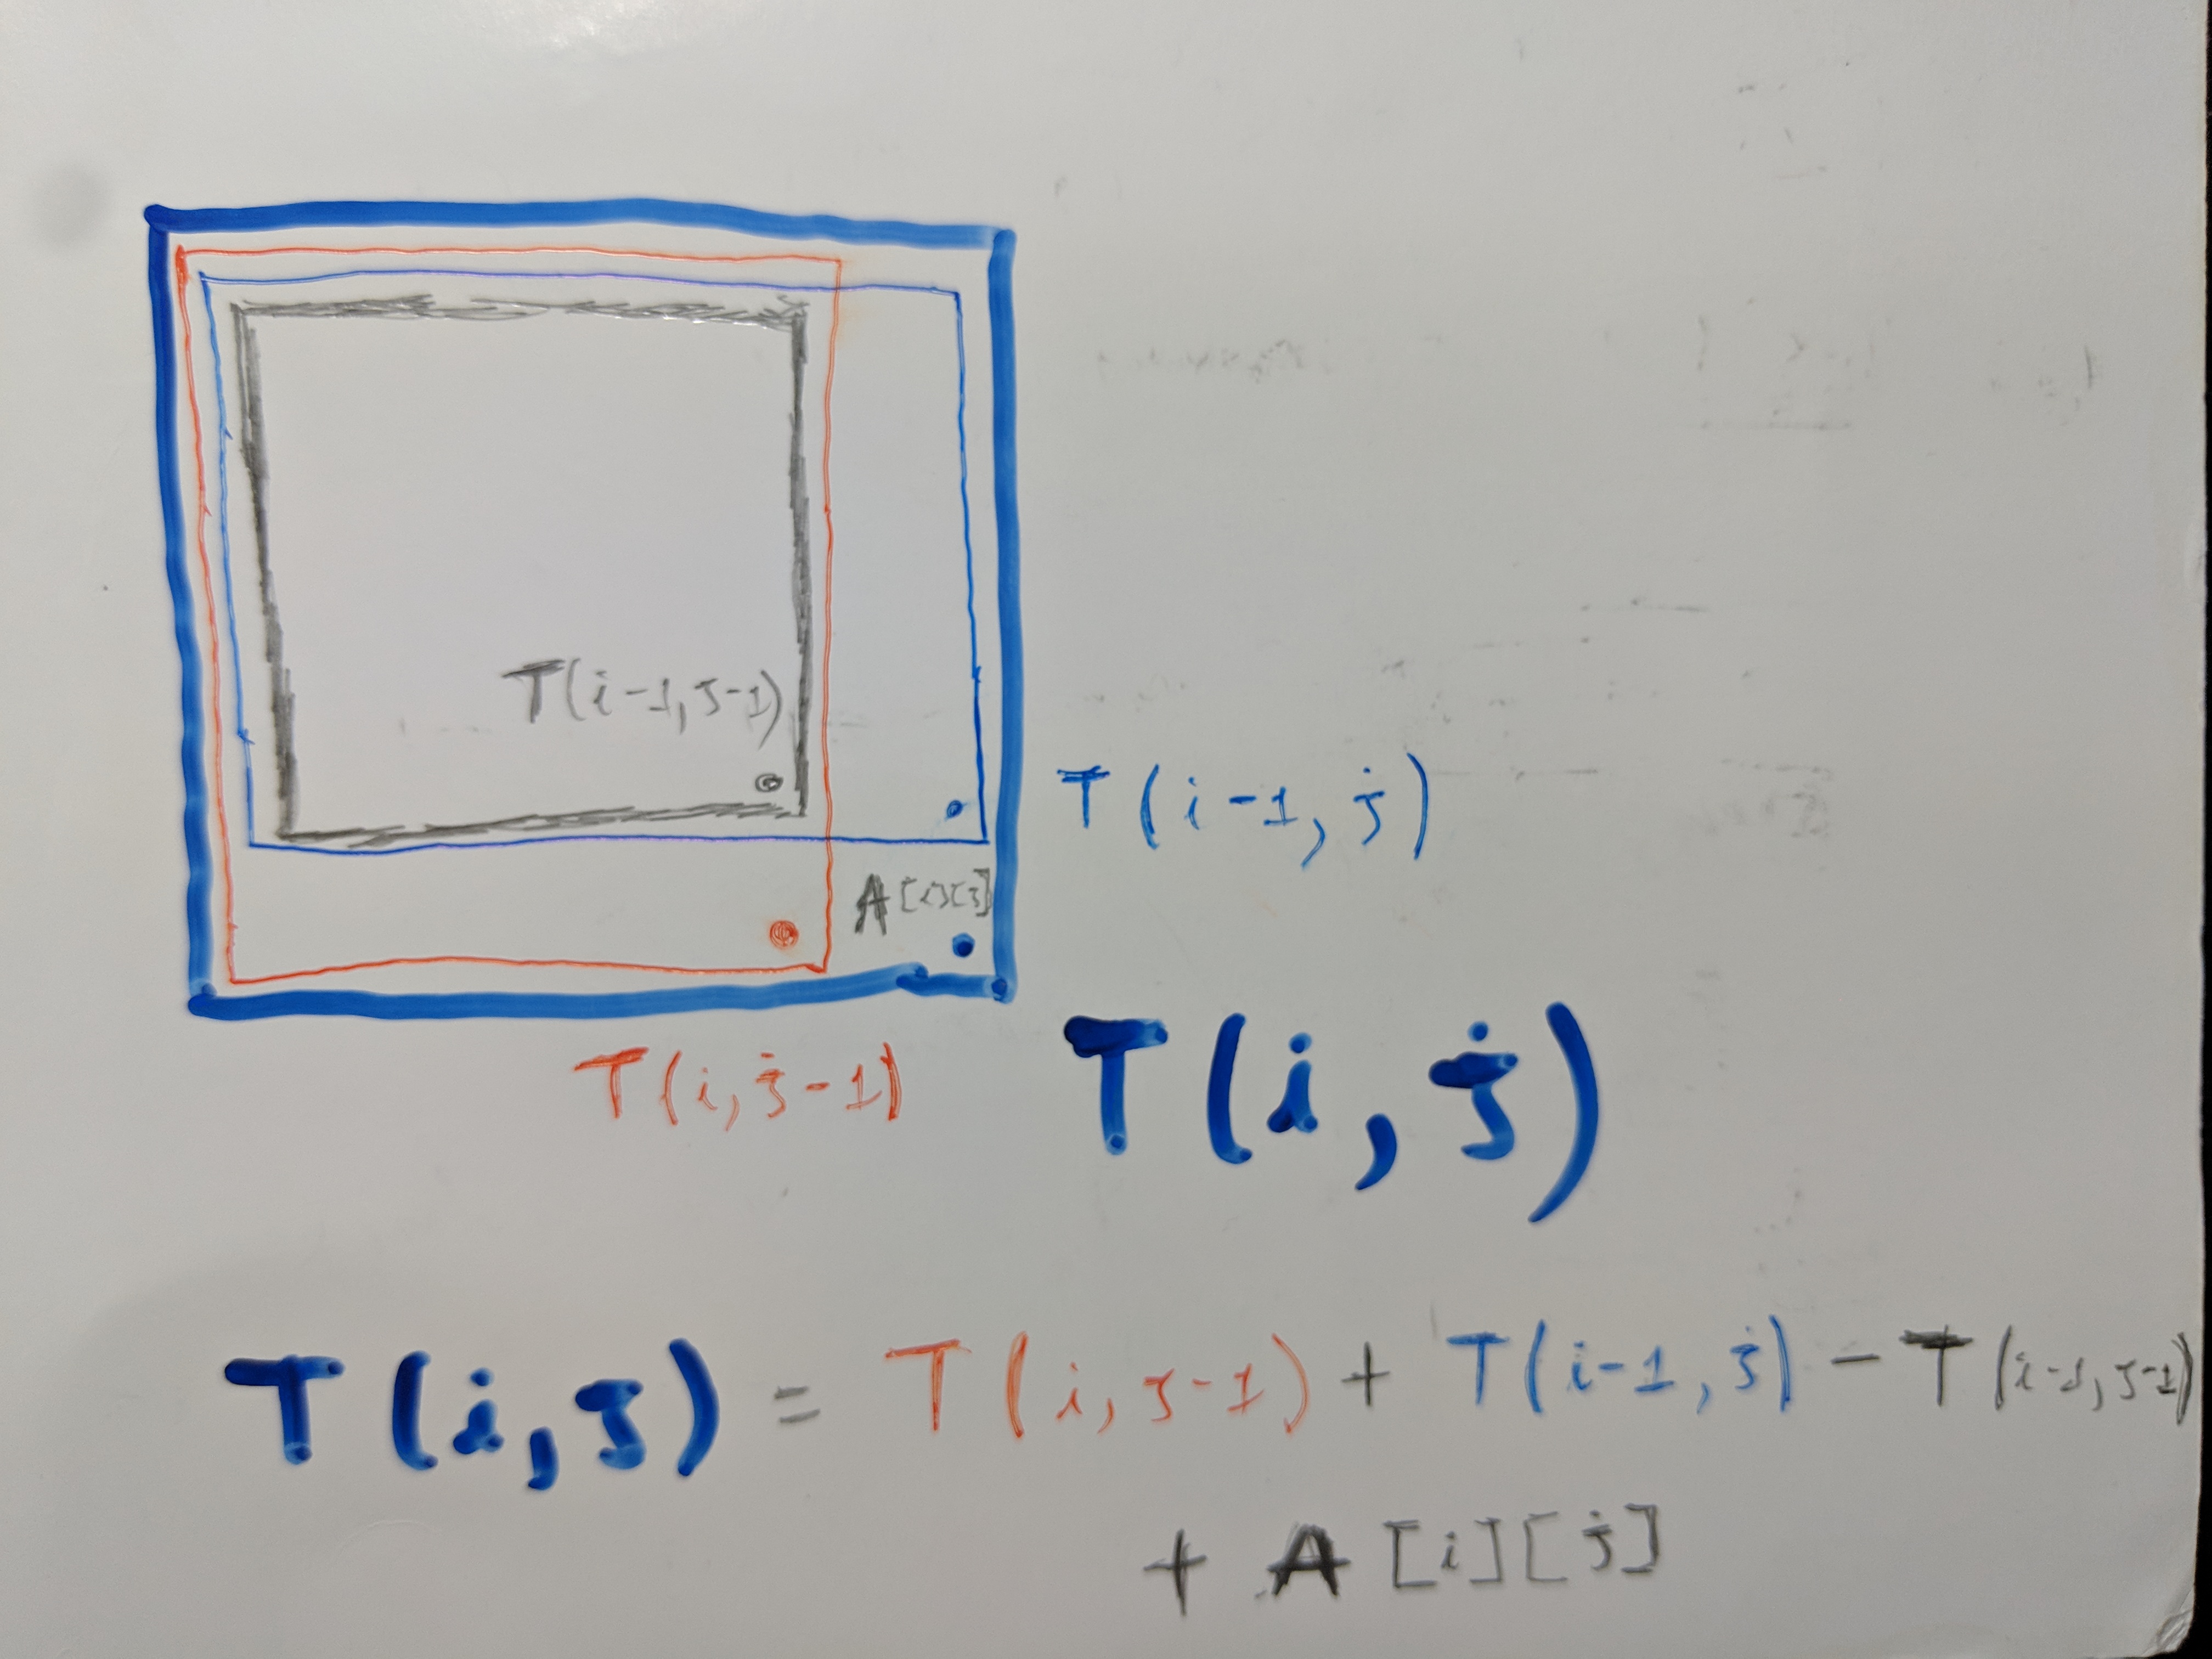 T(i-1,j-1)
T(i-1,j)
A[i][j]
T(i,j-1)
T(i,j)
T(i,j) = T(i,j-1) + T(i-1,j) - T(i-1,j-1)
+ A[i][j]